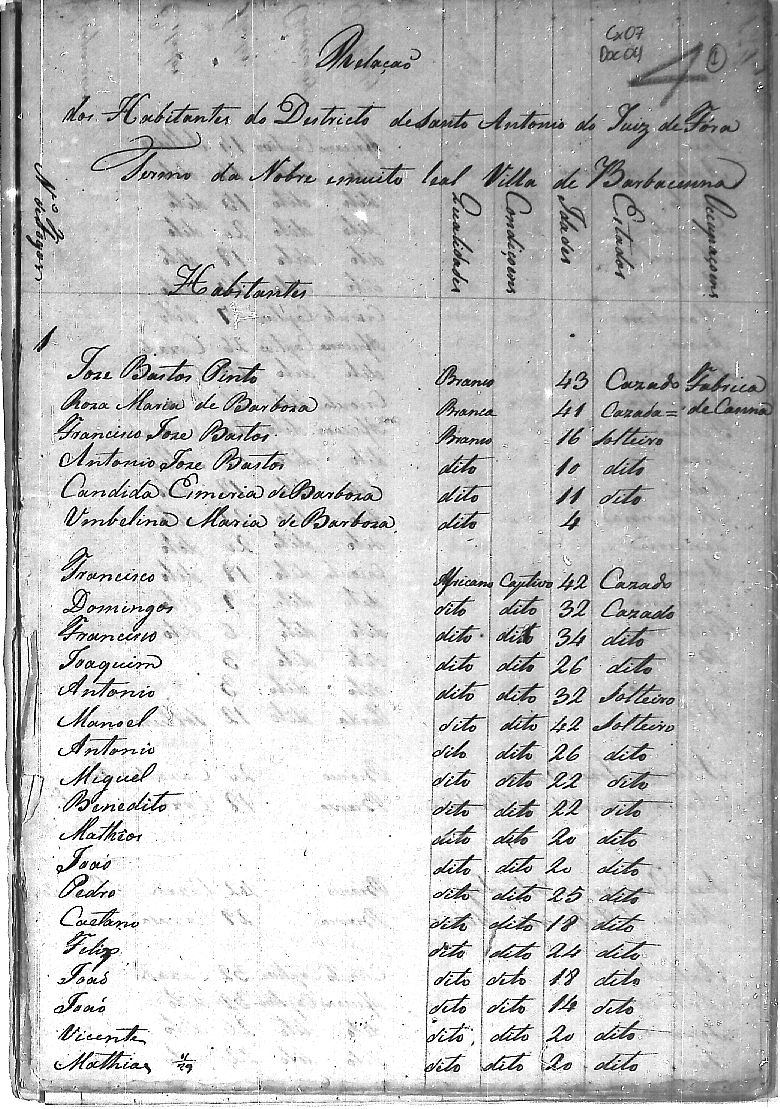 Cx07
Doc04
4 1
Relaçaõ
dos Habitantes do Districto de Santo Antonio do Juiz de Fora
Termo da Nobre emuito Leal Villa de Barbacenna
N.os de Fogos
Habitantes Qualidades Condiçoens Idades Estados Ocupaçoens
1
Joze Bastos Pinto Branco 43 Cazado Fabrica
Roza Maria de Barboza Branca 41 Cazada = de Canna
Francisco Joze Bastos Branco 16 Solteiro
Antonio Joze Bastos dito 10 dito
Candida Esmeria de Barboza dito 11 dito
Vmbelina Maria de Barboza dito 4
Francisco Africano Captivo 42 Cazado
Domingos dito dito 32 Cazado
Francisco dito dito 34 dito
Joaquim dito dito 26 dito
Antonio dito dito 32 Solteiro
Manoel dito dito 42 Solteiro
Antonio dito dito 26 dito
Miguel dito dito 22 dito
Benedito dito dito 22 dito
Mathias dito dito 20 dito
Joaõ dito dito 20 dito
Pedro dito dito 25 dito
Caetano dito dito 18 dito
Felix dito dito 24 dito
Joaõ dito dito 18 dito
Joaõ dito dito 14 dito
Vicente dito dito 20 dito
Mathias dito dito 20 dito